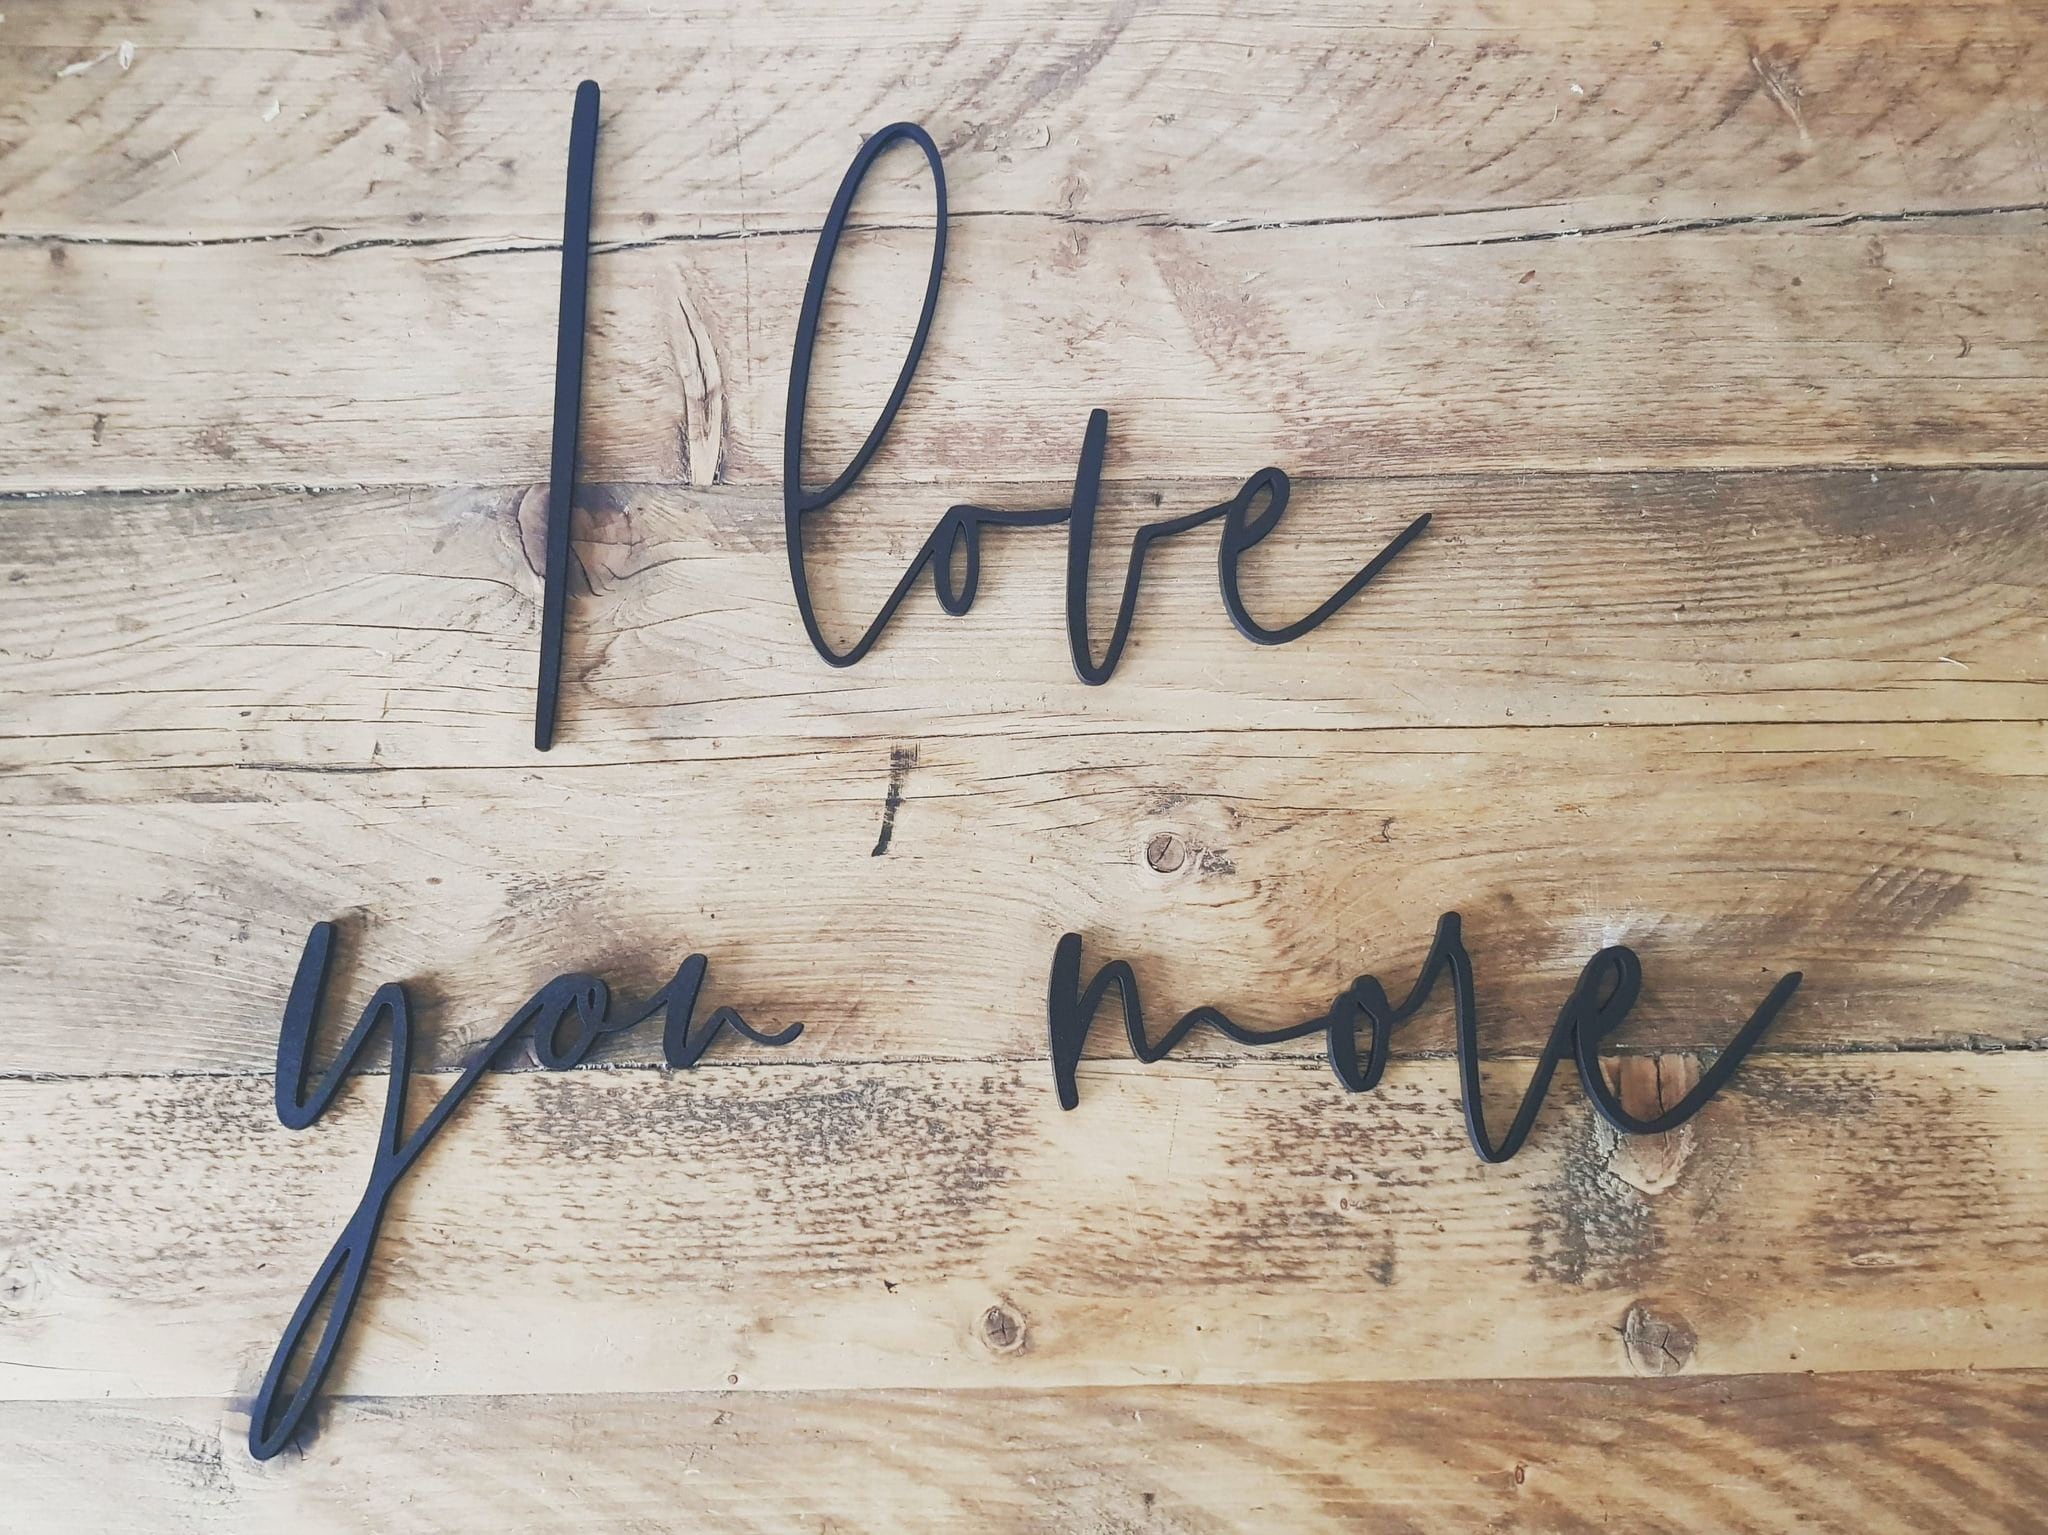 I love
you more